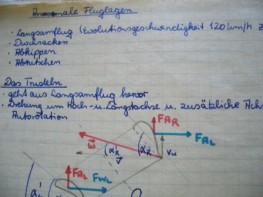 Anormale Fluglagen
· Langsamflug (Evolutionsgeschwindigkeit 120 km/h
· Durchsacken
· Abkippen
· Abrutschen
Das Trudeln
· geht aus Langsamflug hervor
· Drehung um Hoch- u. Längsachse u. zusätzliche
Autorotation
FAR
FAL
Vu
FAL